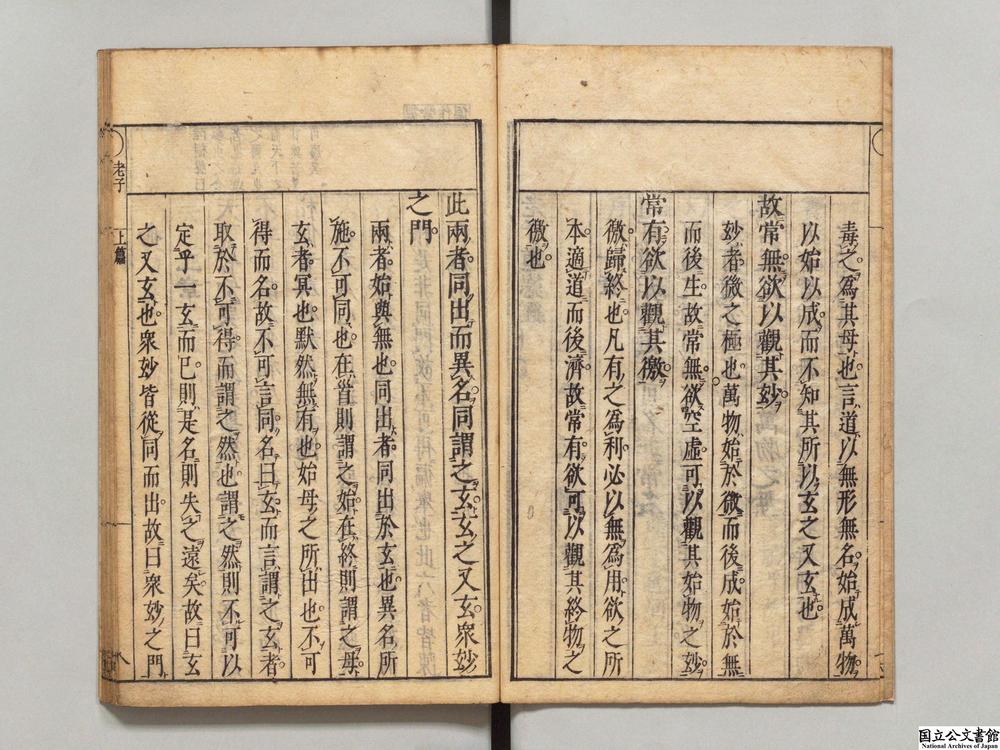 毒之爲其母也言道以無形無名始成萬物
以始以成而不知其所以玄之又玄也
故常無欲以觀其妙
妙者微之極也萬物始於微而後成始於無
而後生故常無欲空虛可以觀其始物之妙
常有欲以觀其徼
徼歸終也凡有之爲利必以無爲用欲之所
本適道而後濟故常有欲可以觀其終物之
徼也
此兩者同出而異名同謂之玄玄之又玄衆妙
之門
兩者始與無也同出者同出於玄也異名所
施不可同也在首則謂之始在終則謂之母
玄者冥也默然無有也始母之所出也不可
得而名故不可言同名曰玄而言謂之玄者
取於不可得而謂之然也謂之然則不可以
定乎一玄而已則是名則失之遠矣故曰玄
之又玄也衆妙皆從同而出故曰衆妙之門
老子 上篇 八
国立公文書館
National Archives of Japan